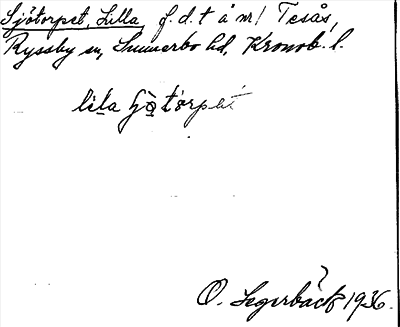 Sjötorpet, Lilla f.d. t å nr 1 Tesås,
Ryssby sn, Sunnerbo hd, Kronob. l.
lila ʃötorpet
O. Segerbäck 1936.